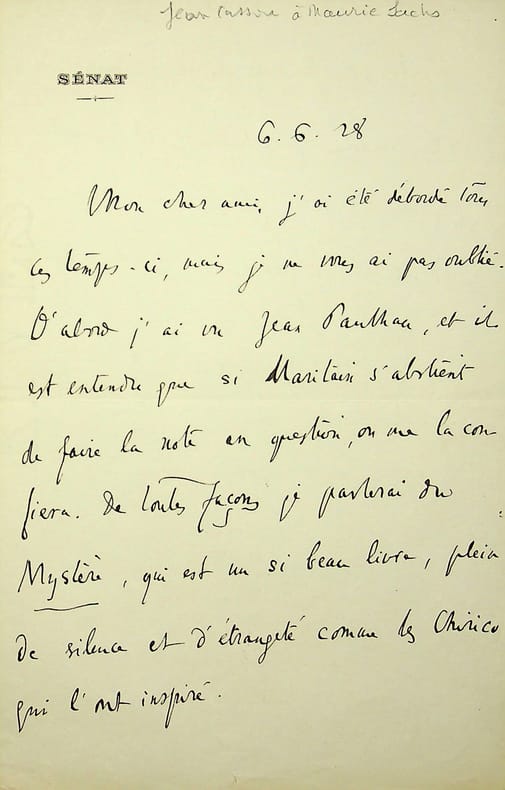 Jean Cassou à Maurice Sachs
SÉNAT
6. 6. 28
Mon cher ami, j'ai été débordé tous
ces temps-ci, mais je ne vous ai pas oublié.
D'abord j'ai vu Jean Paulhan, et il
est entendu que si Maritain s'abstient
de faire la note en question, on me la con
fiera. De toutes façons je parlerai du
Mystère, qui est un si beau livre, plein
de silence et d'étrangeté comme les Chirico
qui l'ont inspiré.